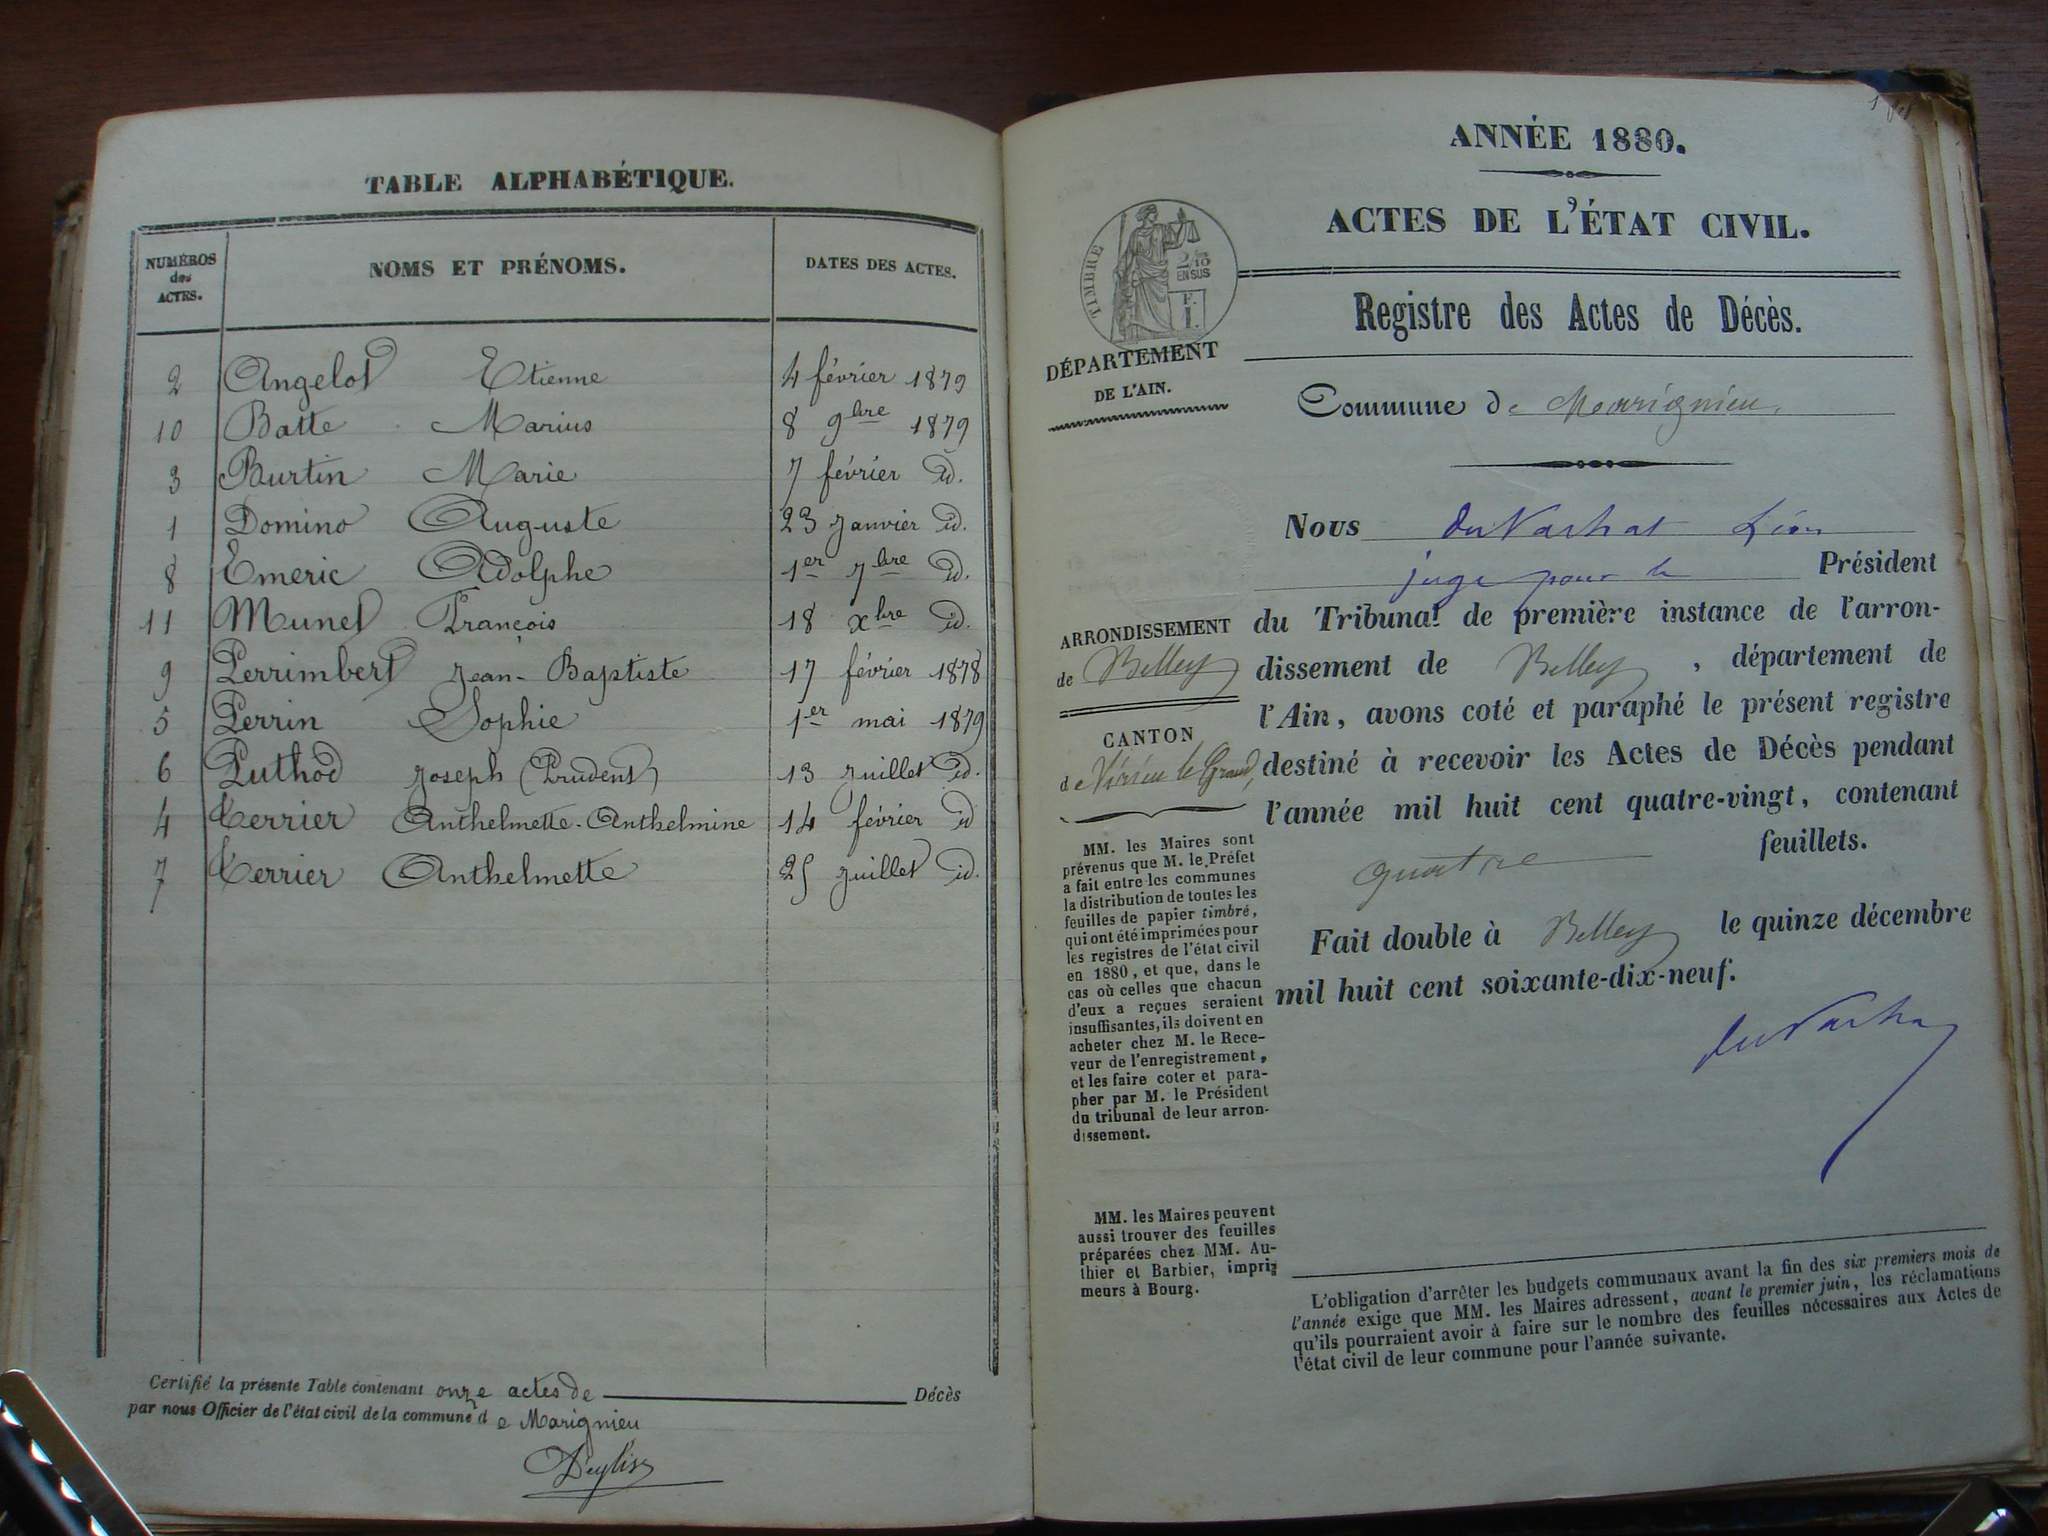 TABLE ALPHABÉTIQUE.
NUMÉROS des ACTES.
NOMS ET PRÉNOMS.
DATES DES ACTES.
2 Angelot Etienne 4 février 1879
10 Batte Marius 8 9bre 1879
3 Burtin Marie 7 février id.
1 Domino Auguste 23 Janvier id.
8 Emeric Adolphe 1er 7bre id.
11 Munet François 18 xbre id.
9 Perrimbert Jean-Baptiste 17 février 1878
5 Perrin Sophie 1er mai 1879
6 Puthod Joseph (Prudent) 13 Juillet id.
4 Terrier Anthelmette-Anthelmine 14 février id
7 Terrier Anthelmette 25 Juillet id.
Certifié la présente Table contenant onze actes de Décès
par nous Officier de l'état civil de la commune de Marignieu
ANNÉE 1880.
ACTES DE L'ÉTAT CIVIL.
TIMBRE
2/10
EN SUS
F.
1.
Registre des Actes de Décès.
DÉPARTEMENT
DE L'AIN.
Commune de Marignieu.
Nous Léon
juge pour le Président
du Tribunal de première instance de l'arron-
dissement de Belley, département de
l'Ain, avons coté et paraphé le présent registre
destiné à recevoir les Actes de Décès pendant
l'année mil huit cent quatre-vingt, contenant
quatre feuillets.
Fait double à Belley le quinze décembre
mil huit cent soixante-dix-neuf.
ARRONDISSEMENT
de Belley
CANTON
de Virieu le Grand,
MM. les Maires sont
prévenus que M. le Préfet
a fait entre les communes
la distribution de toutes les
feuilles de papier timbré,
qui ont été imprimées pour
les registres de l'état civil
en 1880, et que, dans le
cas où celles que chacun
d'eux a reçues seraient
insuffisantes, ils doivent en
acheter chez M. le Rece-
veur de l'enregistrement,
et les faire coter et para-
pher par M. le Président
du tribunal de leur arron-
dissement.
MM. les Maires peuvent
aussi trouver des feuilles
préparées chez MM. Au-
thier et Barbier, impri-
meurs à Bourg.
L'obligation d'arrêter les budgets communaux avant la fin des six premiers mois de
l'année exige que MM. les Maires adressent, avant le premier juin, les réclamations
qu'ils pourraient avoir à faire sur le nombre des feuilles nécessaires aux Actes de
l'état civil de leur commune pour l'année suivante.